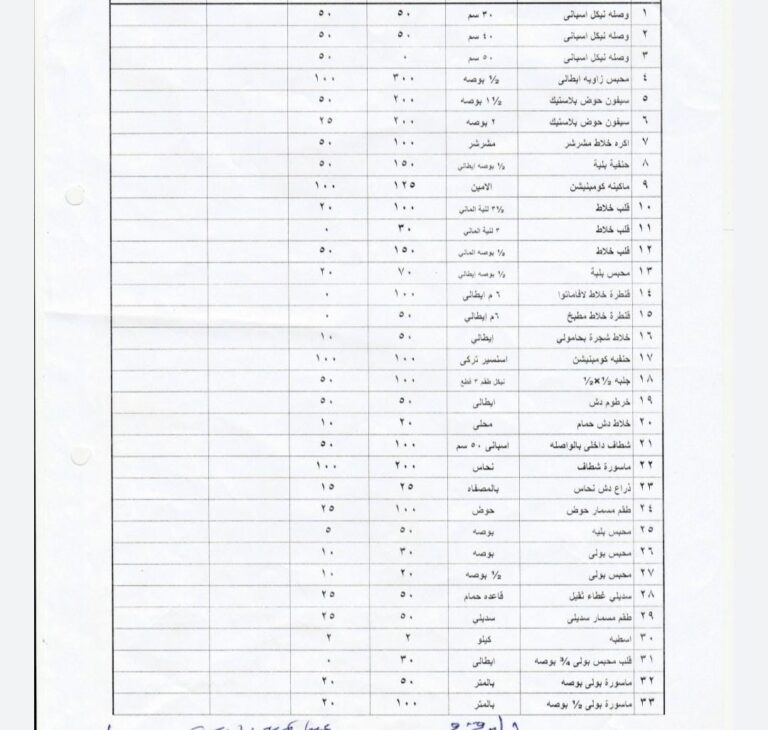 ١ وصله نيكل اسبانى ٣٠ سم ٥٠ ٥٠
٢ وصله نيكل اسبانى ٤٠ سم ٥٠ ٥٠
٣ وصله نيكل اسبانى ٥٠ سم ٠ ٥٠
٤ محبس زاويه ايطالى ½ بوصه ٣٠٠ ١٠٠
٥ سيفون حوض بلاستيك ١½ بوصه ٢٠٠ ٥٠
٦ سيفون حوض بلاستيك ٢ بوصه ٢٠٠ ٢٥
٧ اكره خلاط مشرشر مشرشر ١٠٠ ٥٠
٨ حنفية بلية ½ بوصه ايطالى ١٥٠ ٥٠
٩ ماكينه كومبنيشن الامين ١٢٥ ١٠٠
١٠ قلب خلاط المانى ١٠٠ ٢٠
١١ قلب خلاط ٣ المانى ٣٠ ٠
١٢ قلب خلاط ½ بوصه المانى ١٥٠ ٥٠
١٣ محبس بلية ½ بوصه ايطالى ٧٠ ٢٠
١٤ قنطرة خلاط ٦ م ايطالى ١٠٠ ٠
١٥ قنطرة خلاط مطبخ ٦م ايطالى ٥٠ ٠
١٦ خلاط شجرة بحامولى إيطالى ٥٠ ١٠
١٧ حنفيه كومبنيشن تركى ١٠٠ ١٠٠
١٨ جلبه ½×½ نيكل طقم ٣ قطع ١٠٠ ٥٠
١٩ خرطوم دش ايطالى ٥٠ ٥٠
٢٠ خلاط دش حمام محلى ٢٠ ١٠
٢١ شطاف داخلى بالواصله اسبانى ٥٠ سم ١٠٠ ٥٠
٢٢ ماسورة شطاف نحاس ٢٠٠ ١٠٠
٢٣ ذراع دش نحاس بالمصفاه ٢٥ ١٥
٢٤ طقم مسمار حوض حوض ١٠٠ ٢٥
٢٥ محبس بليه بوصه ٥٠ ٥
٢٦ محبس بولى بوصه ٣٠ ١٠
٢٧ محبس بولى ½ بوصه ٢٠ ١٠
٢٨ سديلى غطاء ثقيل قاعده حمام ٥٠ ٢٥
٢٩ طقم مسمار سديلى سديلى ٥٠ ٢٥
٣٠ اسطبه كيلو ٢ ٢
٣١ قلب محبس بولى ¾ بوصه ايطالى ٣٠ ٠
٣٢ ماسورة بولى بوصه بالمتر ٥٠ ٢٠
٣٣ ماسورة بولى ½ بوصه بالمتر ١٠٠ ٢٠